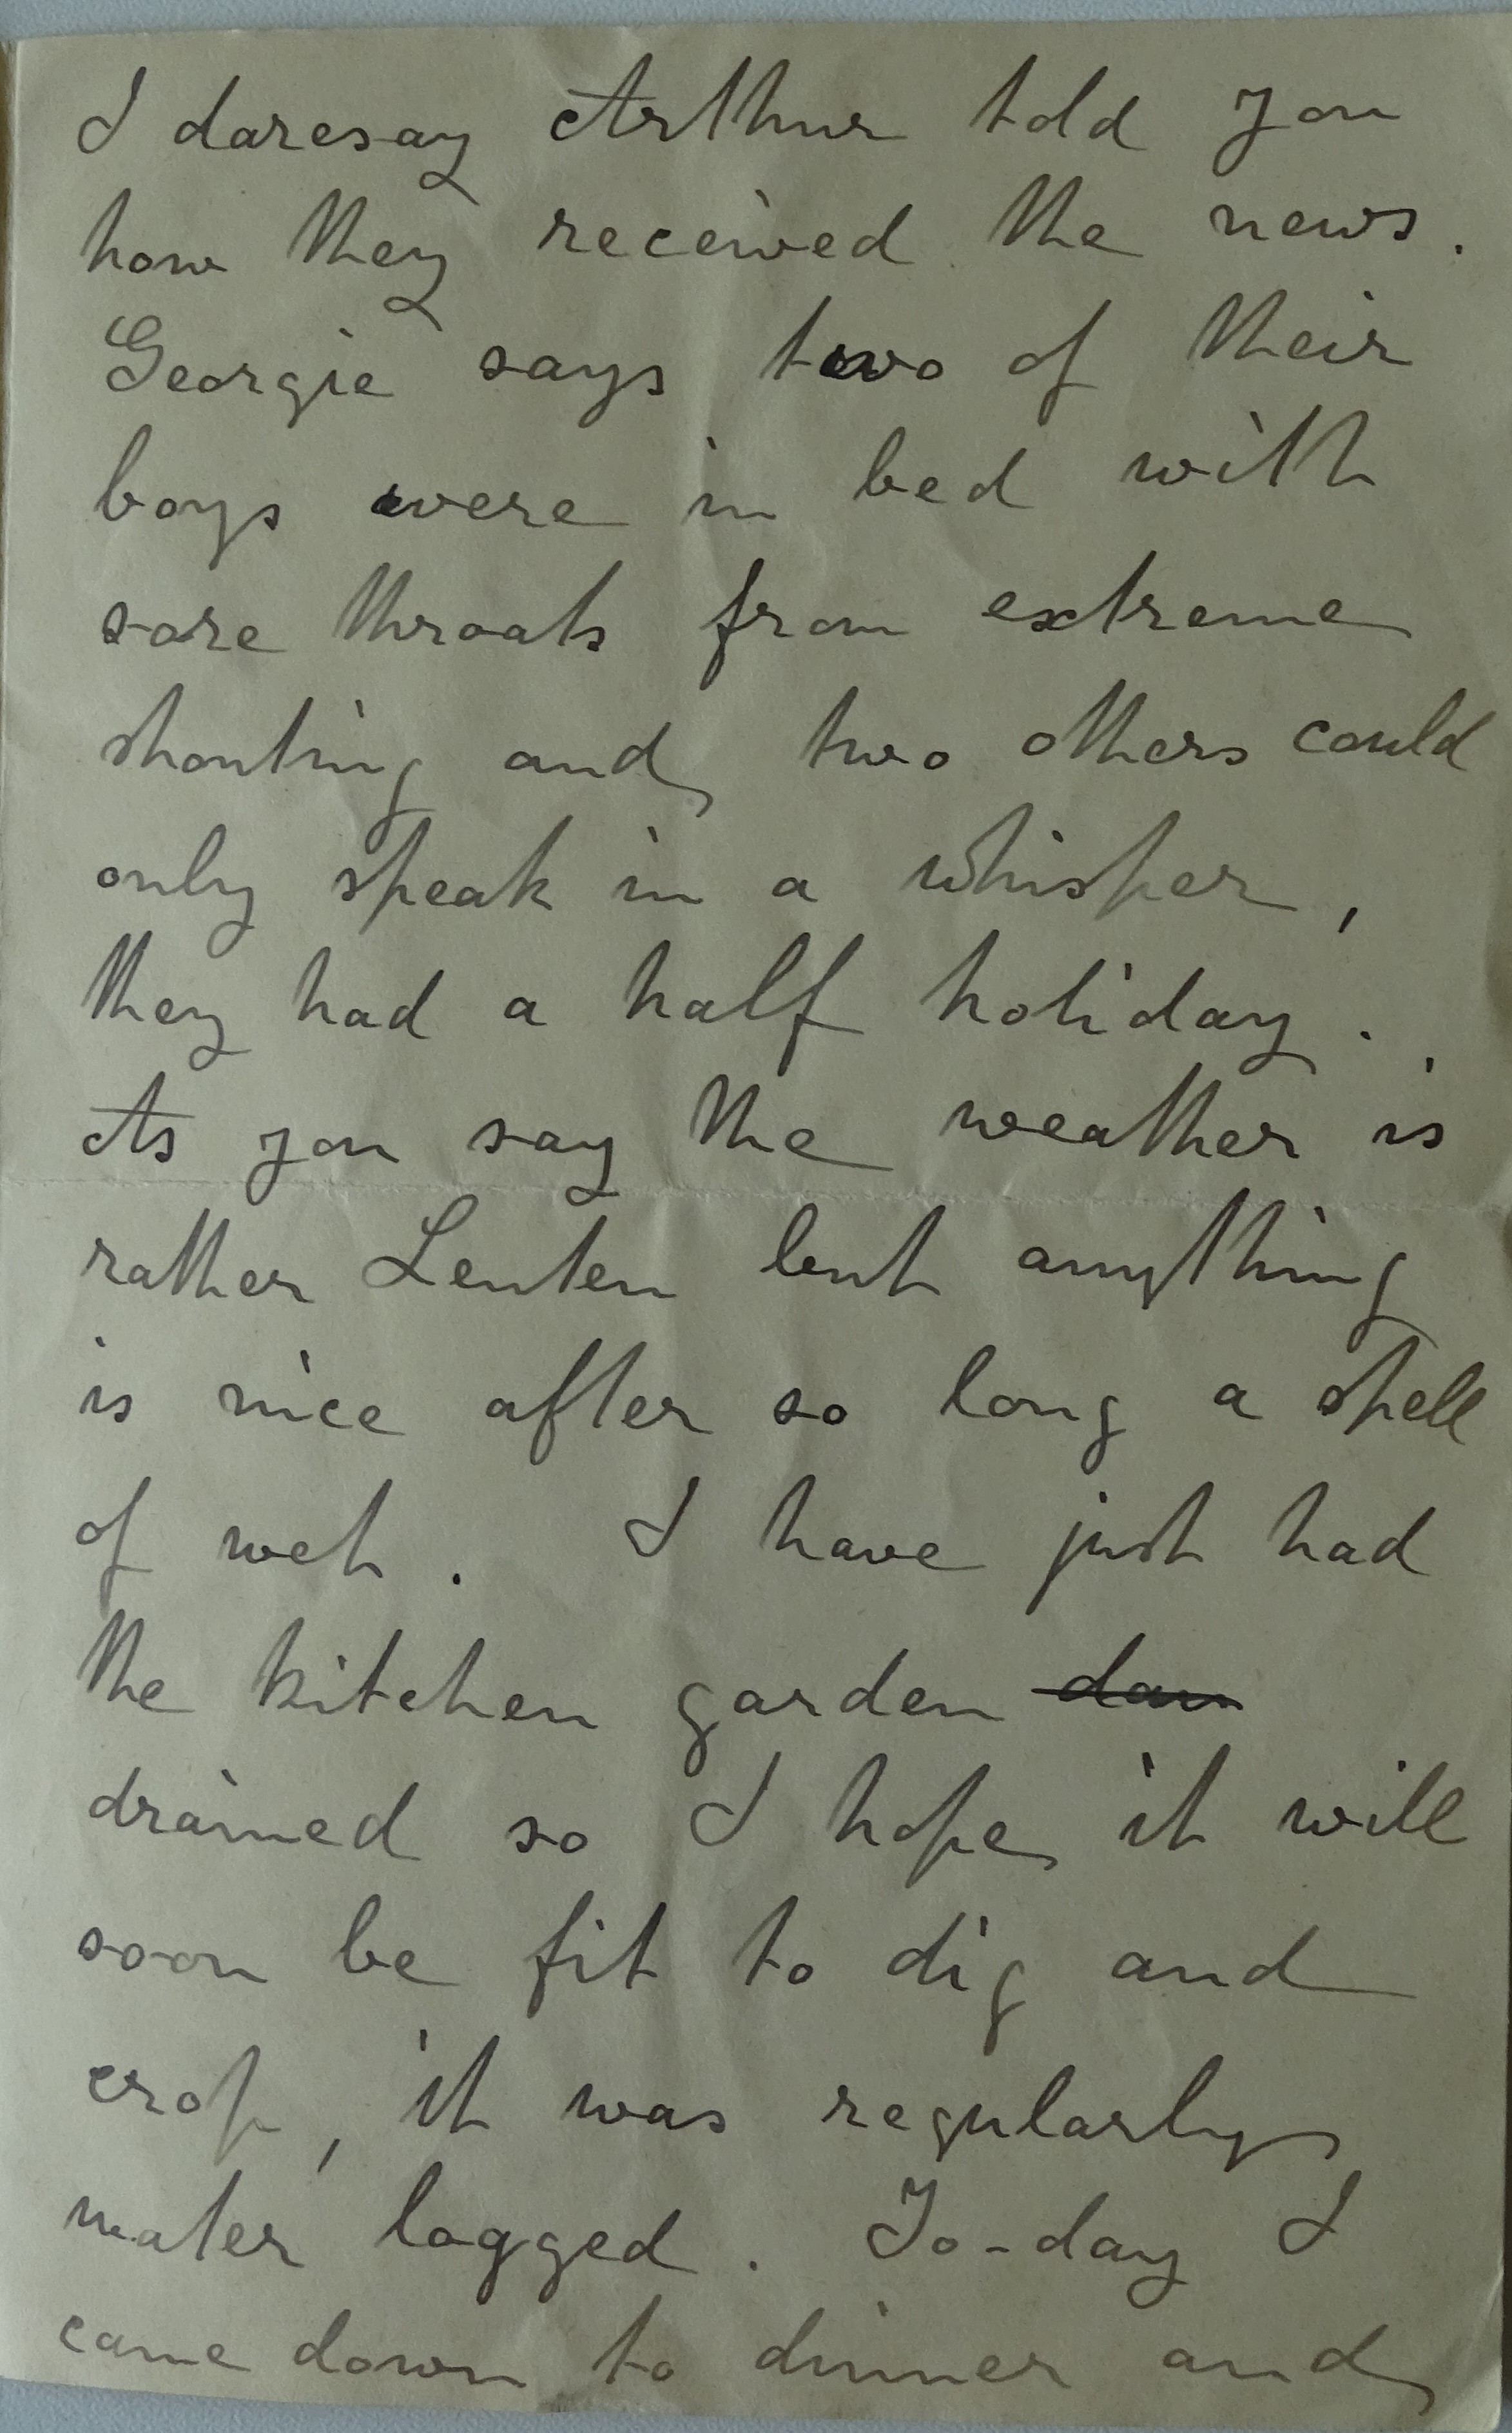 I daresay Arthur told you
how they received the news.
Georgie says two of their
boys were in bed with
sore throats from extreme
shouting and two others could
only speak in a whisper,
they had a half holiday.
As you say the weather is
rather Lenten but anything
is nice after so long a spell
of wet. I have just had
the kitchen garden
drained so I hope it will
soon be fit to dig and
crop, it was regularly
water logged. To-day I
came down to dinner and